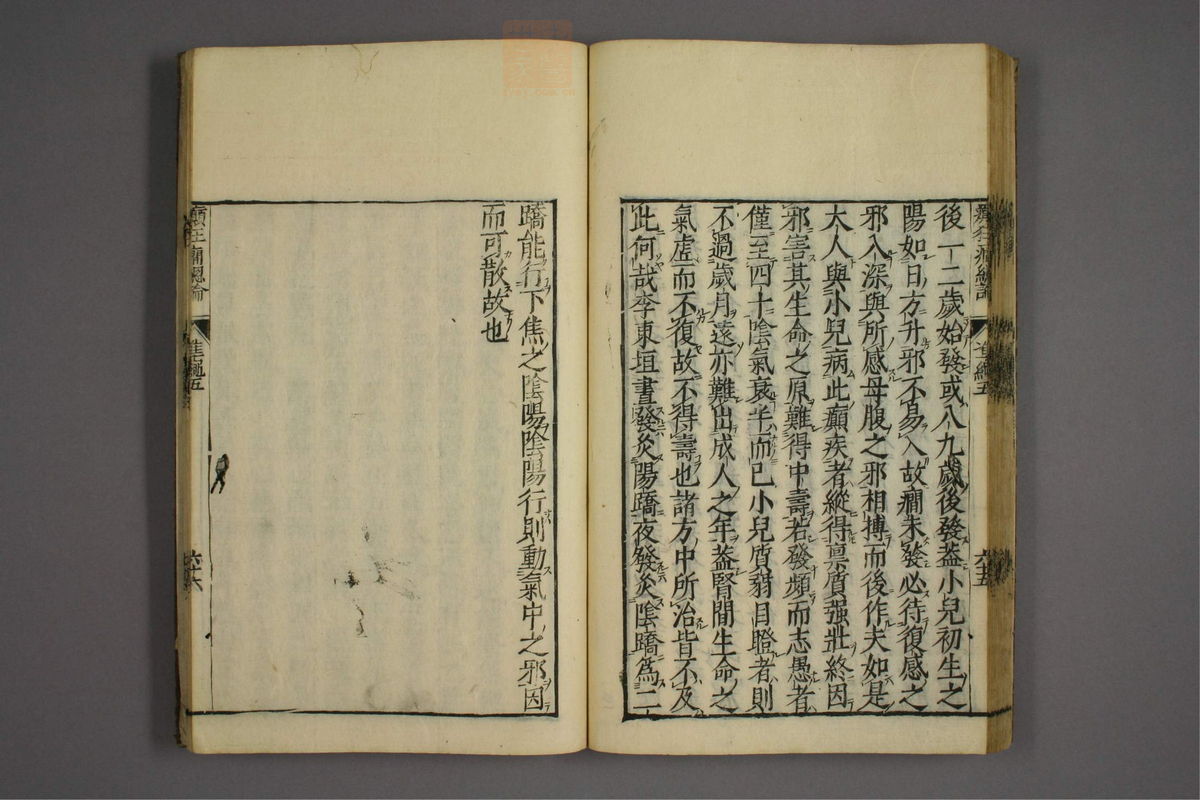 後一二歲始發或八九歲後發蓋小兒初生之
陽如日方升邪不易入故癇未發必待復感之
邪入深與所感母腹之邪相搏而後作夫如是
大人與小兒病此癲疾者縱得禀質强壯終因
邪害其生命之原難得中壽若發頻而志愚者
僅至四十陰氣衰半而已小兒質弱目瞪者則
不過歲月遠亦難出成人之年蓋腎間生命之
氣虛而不復故不得壽也諸方中所治皆不及
此何哉李東垣晝發灸陽蹻夜發灸陰蹻爲二
癲狂癇總論
準繩五
六十五
蹻能行下焦之陰陽陰陽行則動氣中之邪因
而可散故也
癲狂癇總論
準繩五
六十六